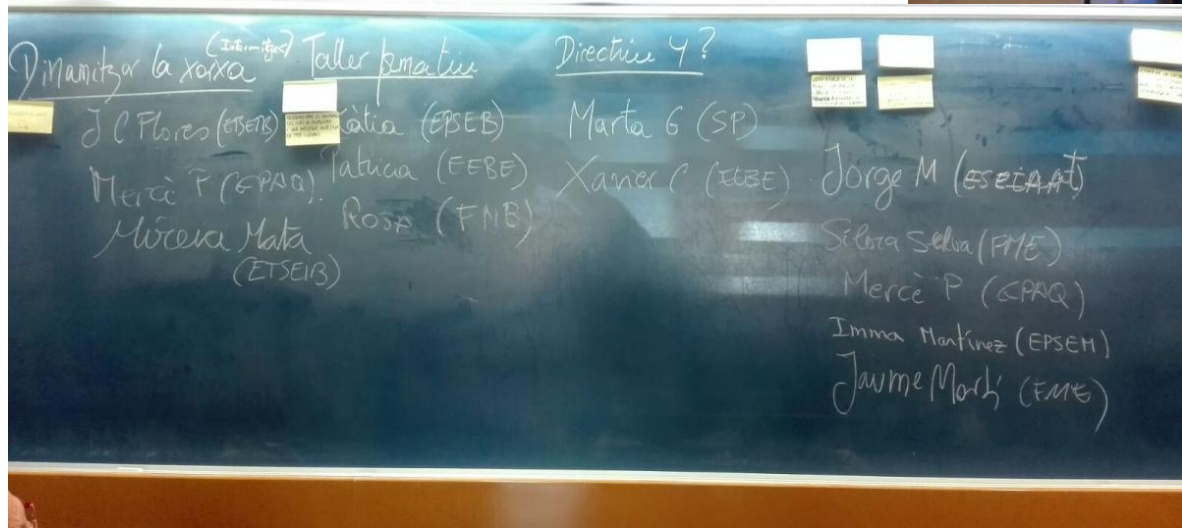 Dinamitzar la xarxa
Taller temàtic
Directriu 4?
J C Flores (ETSEIB)
Mercè P (GPAQ).
Mireia Mata
(ETSEIB)
Kàtia (EPSEB)
Patricia (EEBE)
Rosa (FNB)
Marta G (SP)
Xavier C (EEBE)
Jorge M (ESEIAAT)
Silvia Selva (FME)
Mercè P (GPAQ)
Imma Martínez (EPSEM)
Jaume Martí (FME)